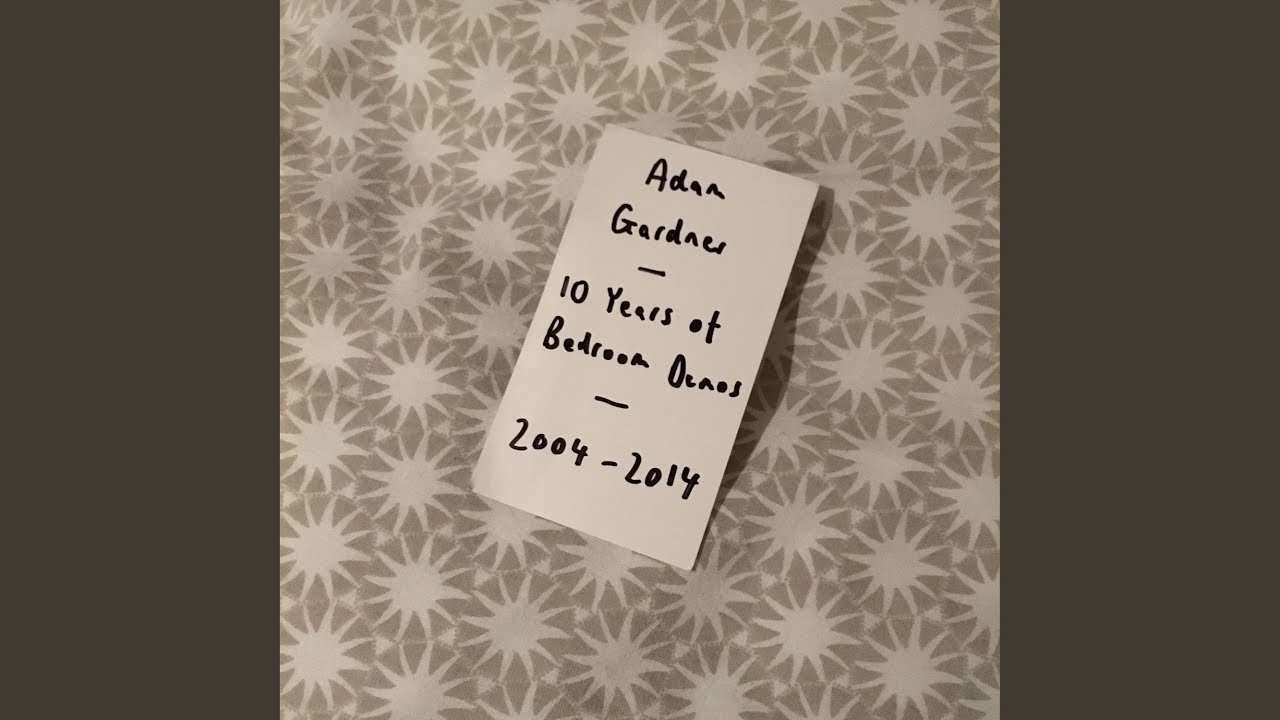 Adam
Gardner
—
10 Years of
Bedroom Demos
—
2004-2014